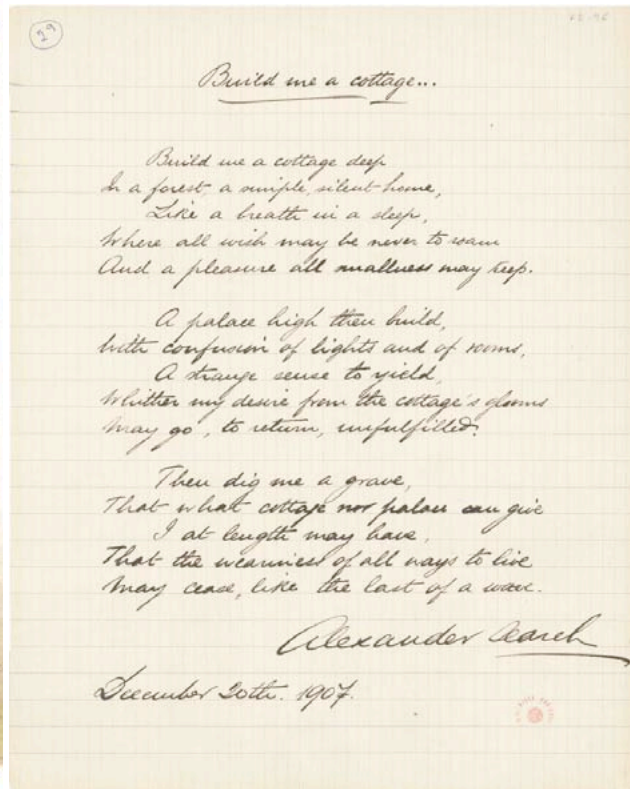 29
Build me a cottage...
Build me a cottage deep
In a forest, a simple, silent home,
Like a breath in a sleep,
Where all wish may be never to roam
And a pleasure all smallness may keep.
A palace high then build,
With confusion of lights and of rooms,
A strange sense to yield,
Whither my desire from the cottage's glooms
May go, to return, unfulfilled.
Then dig me a grave,
That what cottage nor palace can give
I at length may have,
That the weariness of all ways to live
May cease, like the last of a wave.
Alexander Search
December 20th. 1907.